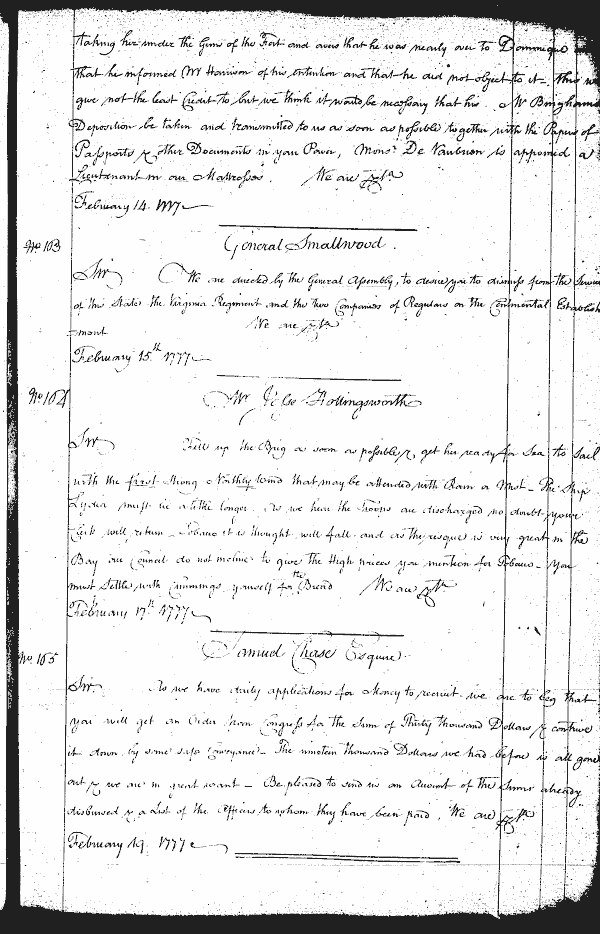 taking her under the Guns of the Fort and avers that he was nearly over to Dominique
that he informed Mr Harrison of his intention and that he did not object to it - this we
give not the least Credit to but we think it would be necessary that his Mr Binghams
Deposition be taken and transmitted to us as soon as possible together with the Papers of
Passports & other Documents in your Power, Monsr De Vaubrun is appointed a
Lieutenant in our Matrosses. We are &ca
February 14. 1777
No 163
General Smallwood.
Sir We are directed by the General Assembly, to desire you to dismiss from the Service
of the State the Virginia Regiment and the two Companies of Regulars on the Continental Establish
=ment We are &ca
February 15th 1777
No 164
Mr Jesse Hollingsworth
Sir Fill up the Brig as soon as possible &, get her ready for Sea to Sail
with the first strong Northly wind that may be attended with Rain a Mist - The Ship
Lydia must lie a little longer. As we hear the Troops are discharged no doubt, your
Clerk will return - Tobacco it is thought will fall and as the risque is very great in the
Bay are Council do not incline to give the High prices you mention for Tobacco - You
must Settle with Cummings yourself for the Bread We are &ca
February 17th 1777
No 165
Samuel Chase Esquire
Sir. As we have daily applications for Money to recruit we are to beg that
you will get an Order from Congress for the Sum of Thirty thousand Dollars & contrive
it down by some safe Conveyance - The nineteen thousand Dollars we had before is all gone
out & we are in great want - Be pleased to send us an Amount of the Sums already
disbursed & a List of the Officers to whom they have been paid. We are &ca
February 19. 1777